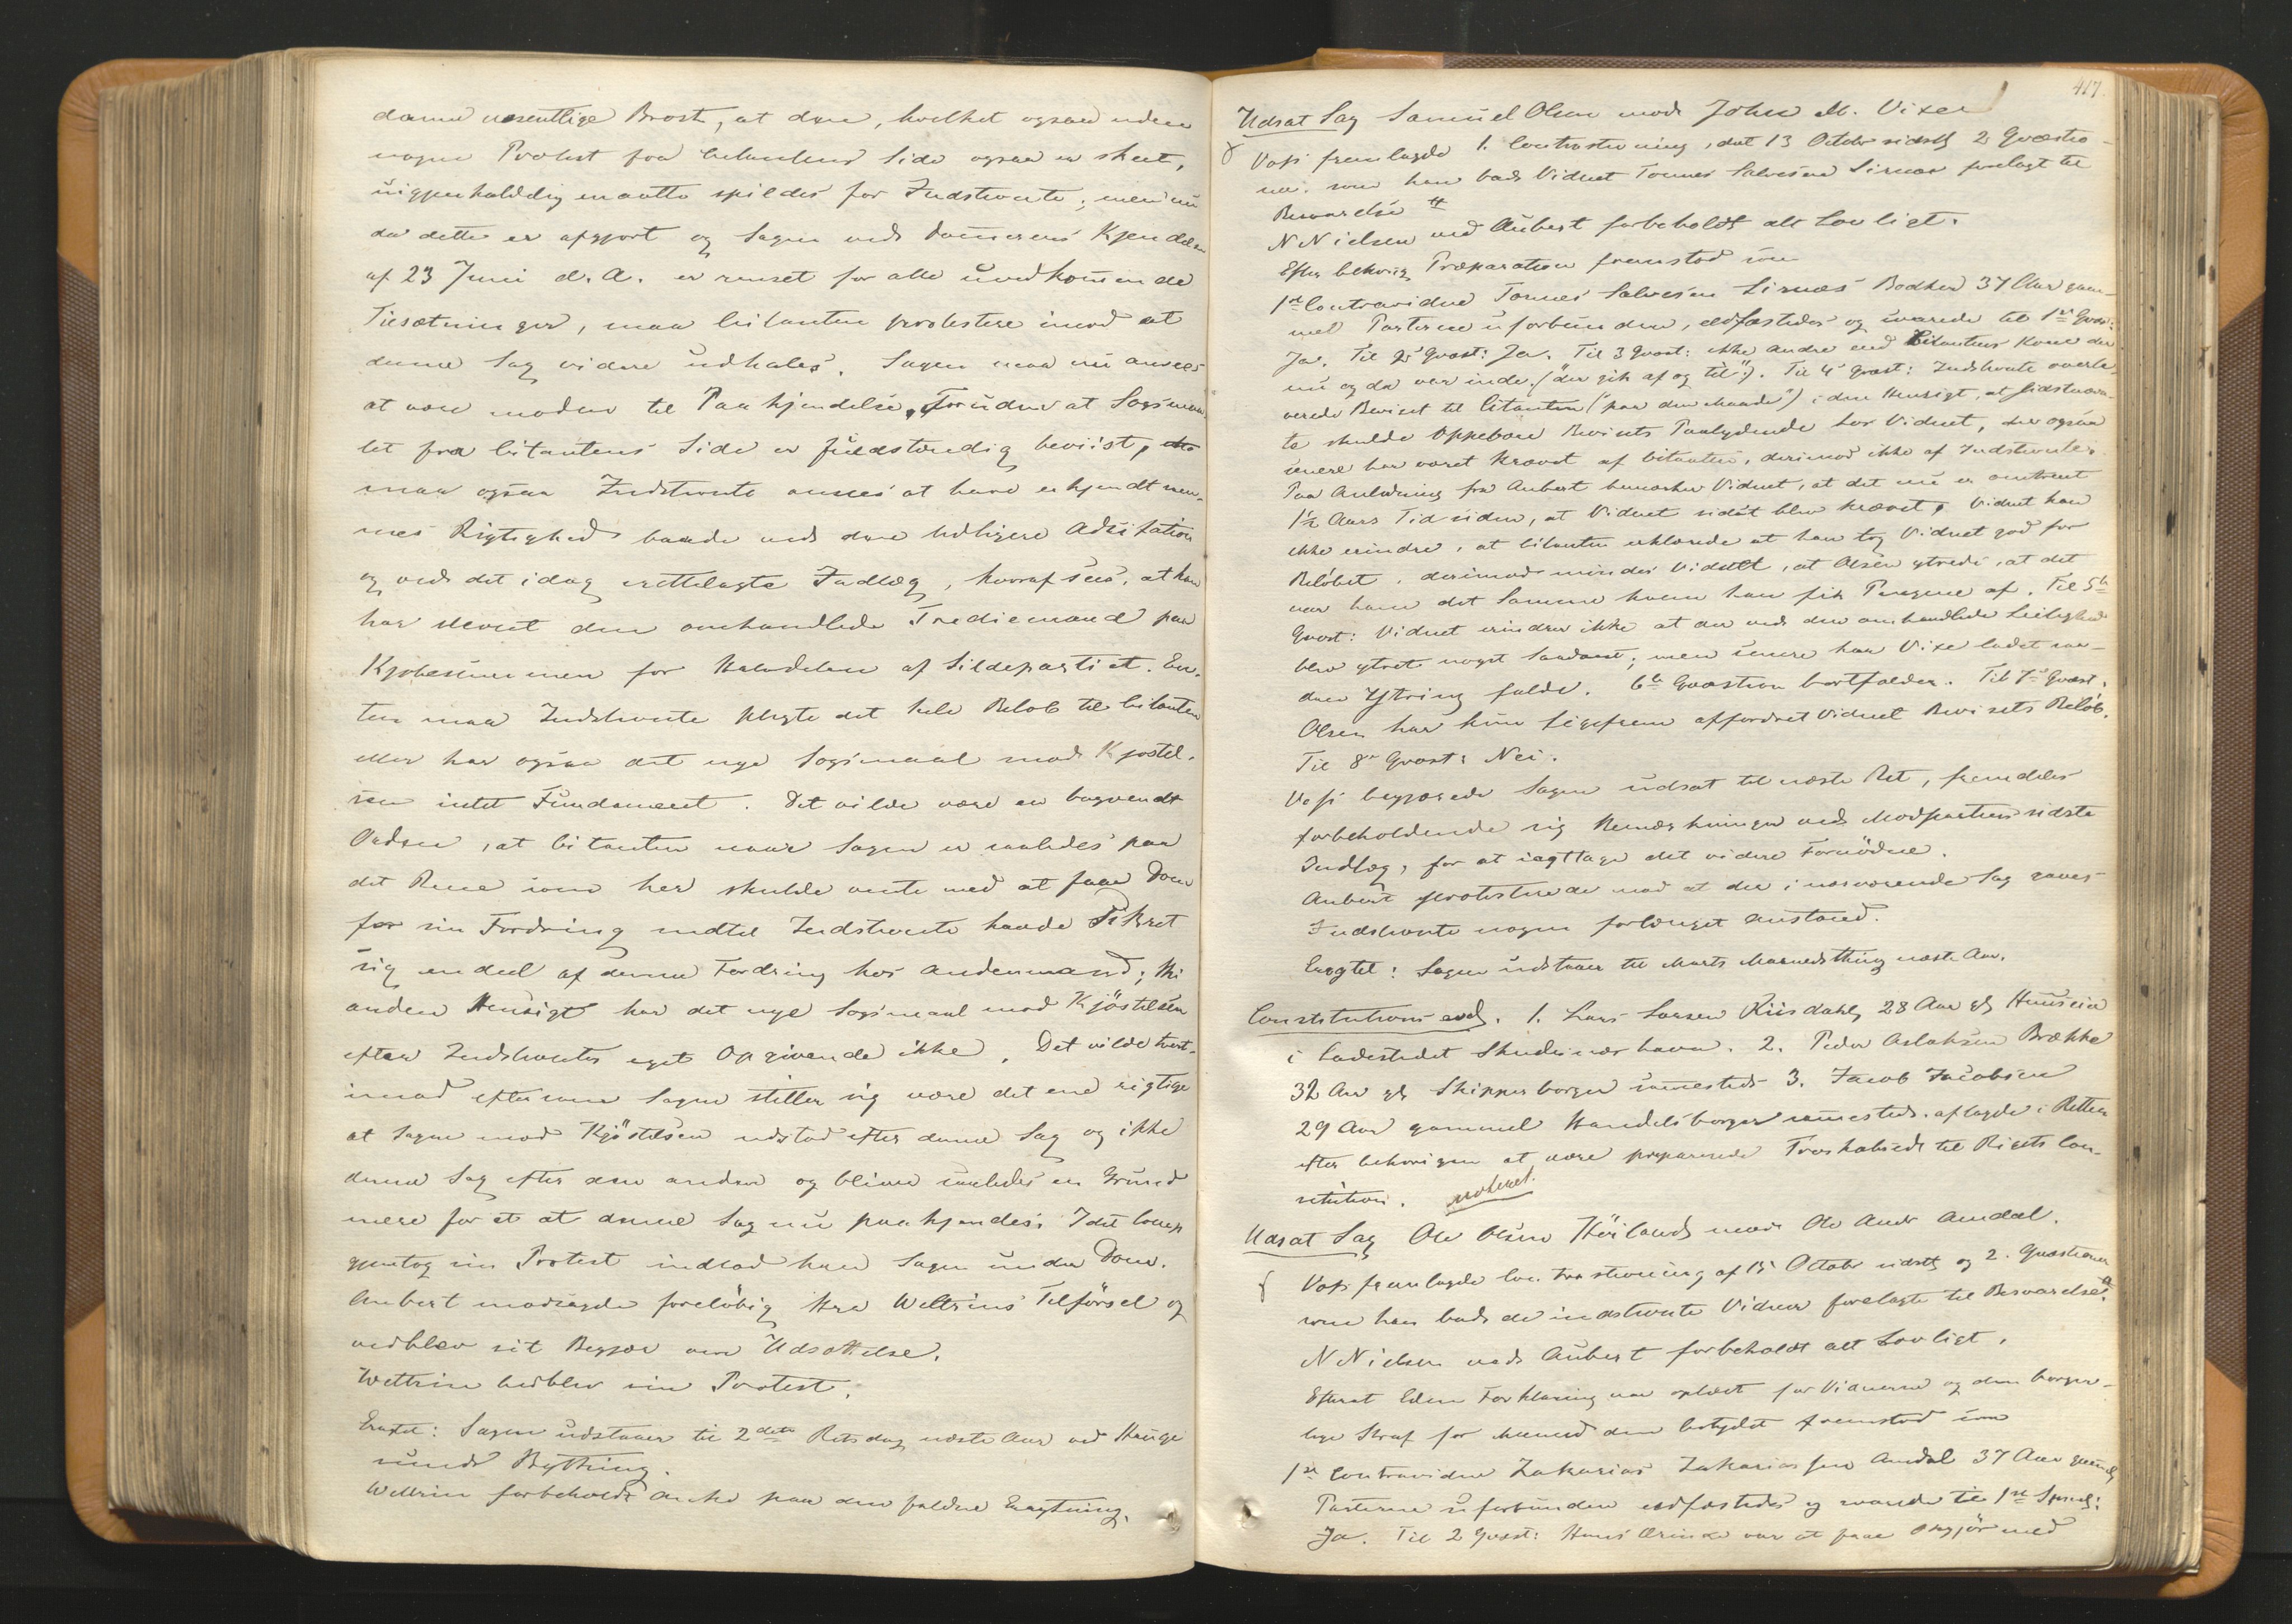 denne væsentlige Brøst, at den, hvilket ogsaa uden
nogen Protest fra Citantens Side ogsaa er skeet,
uigjenkaldelig maatte spildes for Indstevnte; men nu
da dette er afgjort og Sagen ved Dommerens Kjendelse
af 23 Juni d. A. er renset for alle uvedkommende
Tilsætninger, maa Citanten protestere imod at
denne Sag videre udhales. Sagen maa nu ansees
at være moden til Paakjendelse. Foruden at Søgsmaa-
let fra Citantens Side er fuldstændig beviist,
maa ogsaa Indstevnte ansees at have erkjendt sam-
mes Rigtighed baade ved den tidligere Adcitation
og ved det idag irettelagte Indlæg, hvoraf sees, at han
har stevnt den omhandlede Trediemand paa
Kjøbesummen for Halvdelen af Sildepartiet. En-
ten maa Indstevnte skylde det hele Beløb til Citanten
eller har ogsaa det nye Søgsmaal mod Kjøstel-
sen intet Fundament. Det vilde være en bagvendt
Orden, at Citanten naar Sagen er saaledes paa
det Rene som her skulde vente med at faae Dom
for sin Fordring indtil Indstevnte havde sikret
sig endeel af denne Fordring hos andenmand; thi
anden Hensigt har det nye Søgsmaal mod Kjöstelsen
efter Indstevntes eget Opgivende ikke. Det vilde tvert-
imod eftersom Sagen stiller sig være det ene rigtige
at Sagen mod Kjöstelsen udstod efter denne Sag og ikke
denne Sag efter den anden og bliver saaledes en Grund
mere for at denne Sag nu paakjendes. Idet Comp
gjentog sin Protest indlod han Sagen under Dom.
Aubert modsagde foreløbig Hr Weltzins Tilförsel og
vedblev sit Begjær om Udsættelse.
Weltzin vedblev sin Protest.
Eragtet: Sagen udstaaer til 2den Retsdag næste Aar ved Hauge
sunds Bything.
Weltzin forbeholdt Anke paa den faldne Eragtning.
417.
Udsat Sag Samuel Olsen mod John M. Vixe
Vofs fremlagde 1. Contrastevning, dat 13 October sidstl 2 Qvæstio-
ner som han bad Vidnet Tønnes Salvesen Sirnæs forelagt til
Besvarelse
N Nielsen ved Aubert forbeholdt alt Lovligt.
Efter behørig Præparation fremstod som
1ste Contravidne Tønnes Salvesen Sirnæs Bødker 37 Aar gam-
mel Parterne uforbunden, edfæstedes og svarede til 1ste Qvæst:
Ja. Til 2 Qvæst: Ja. Til 3 Qvæst: ikke andre end Citantens Kone der
nu og da var inde. ("der gik af og til"). Til 4 Qvæst: Indstevnte overle-
verede Beviset til Citanten ("paa den Maade") i den Hensigt, at sidstnævn-
te skulde oppebære Bevisets Paalydende hos Vidnet, der ogsaa
senere har været krævet af Citanten, derimod ikke af Indstevnte.
Paa Anledning fra Aubert bemærker Vidnet, at det nu er omtrent
1½ Aars Tid siden, at Vidnet sidst blev krævet, Vidnet kan
ikke erindre, at Citanten erklærede at han tog Vidnet god for
Beløbet, derimod mindes Vidnet, at Olsen ytrede, at det
var ham det Samme hvem han fik Pengene af. Til 5te
Qvæst: Vidnet erindrer ikke at der ved den omhandlede Leilighed
blev ytret noget Saadant; men senere har Vixe ladet saa-
dan Ytring falde. 6te Qvæstion bortfalder. Til 7de Qvæst.
Olsen har kun ligefrem affordret Vidnet Bevisets Beløb.
Til 8de Qvæst: Nei.
Vofs begjærede Sagen udsat til næste Ret, fremdeles
forbeholdende sig Bemærkninger ved Modpartens sidste
Indlæg, for at iagttage det videre Fornödne.
Aubert protesterede mod at der i nærværende Sag gaves
Indstevnte nogen forlænget Anstand.
Eragtet: Sagen udstaaer til Marts Maanedsthing næste Aar.
Constitutions eed. 1. Lars Larsen Riisdahl 28 Aar gl Huuseier
i Ladestedet Skudesnæshavn. 2. Peder Aslaksen Brække
32 Aar gl Skipperborger sammesteds 3. Jacob Jacobsen
29 Aar gammel Handelsborger sammesteds aflagde i Retten
efter behørigen at være præparerede Troskabseed til Rigets Con-
stitution. noteret.
Udsat Sag Ole Olsen Hörlands mod Ole Andr Amdal.
Vofs fremlagde Contrastevning af 15 October sidstl og 2. Qvæstioner
som han bad de indstevnte Vidner forelagte til Besvarelse.
N Nielsen ved Aubert forbeholdt alt Lovligt.
Efterat Edens Forklaring var oplæst for Vidnerne og den borger-
lige Straf for Meened dem betydet fremstod som
1ste Contravidne Zakarias Zakariassen Amdal 37 Aar gaml
Parterne uforbunden edfæstedes og svarede til 1ste Spml:
Ja. Til 2 Qvæst: Hans Ærinde var at faae Opgjör med